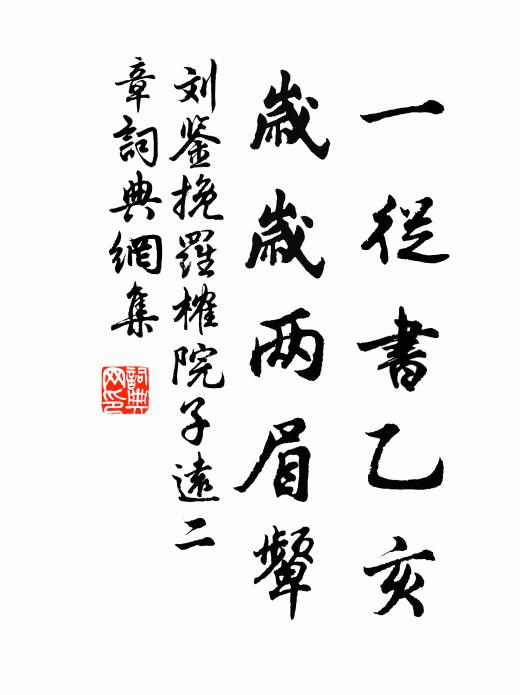 一從書乙亥
歲歲兩眉顰
刘鉴挽羅榷院子遠二
章詞典網集
詞典网印